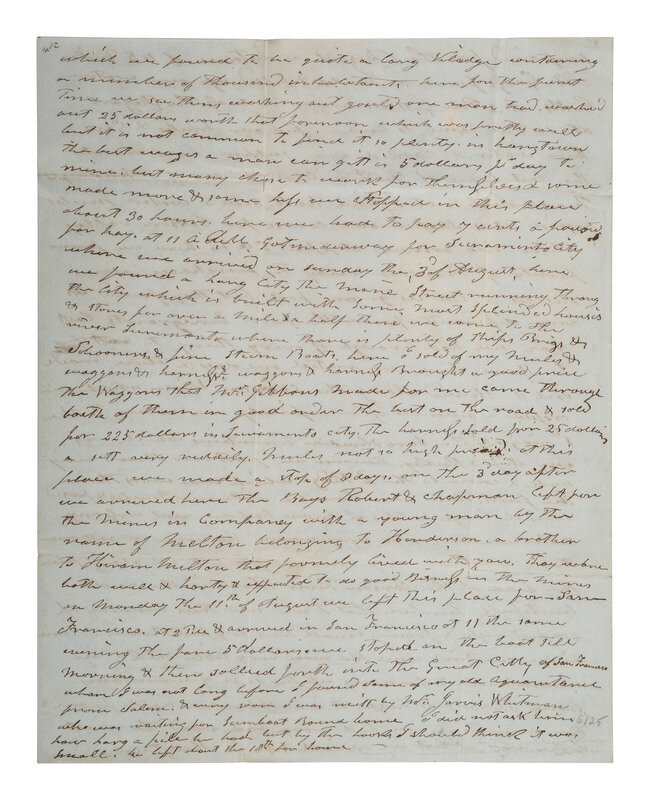 4th
which we found to be quite a larg Viladge containing
a number of thousand inhabatants. here for the furst
time we saw them working out gould one man had washed
out 25 dollars worth that forenoon which was prittty well
but it is not common to find it so plenty. in hangtown
the best wages a man can gitt is 5 dollars pr day to
mine. but many chose to work for themselves & some
made more & some less we Stopped in this place
about 30 hours. here we had to pay 7 cents a pound
for hay. at 11 A till got underway for Sacraminto City
where we arrived on sunday the 3d of August, here
we found a larg City the main Street running throug
the City which is built with some most Splendid houses
& stores for over a mile & a half there we came to the
river Sacramento where there is plenty of Ships Brigs &
Schooners, & fine Steam Boats, here I sold of my Mules &
waggons & harness. waggons & harness Braught a good price
the Waggons that Mr. Gibbons made for me came through
boath of them in good order the best on the road & sold
for 225 dollars in Sacramento city. the harness Sold for 25 dollars
a sett very reddily. mules not so high prised at this
place we made a stop of 8 days. on the 3d day after
we arrived here the Boys Robert & Chapman left for
the mines in Company with a young man by the
name of Melton belonging to Henderson. a brother
to Hiram Milton that formely lived with you. They where
both well & harty & expected to do good Bisness in the mines
on Monday the 11th of August we left this place for San
Francisco. at 2 & arrived in San Francisco at 11 the same
evening the fare 5 Dollars we stoped on the boat till
Morning & then sallied forth into the Great Citty of San Francisco
whare I was not long before I found some of my old aquantance
from Salem. & very soon I was mett by Mr. Jarvis Whitman
who was waiting for Steamboat Bound home I did not ask him
how larg a pile he had but by the looks I should think it was
small. he left about the 15th for home
6125